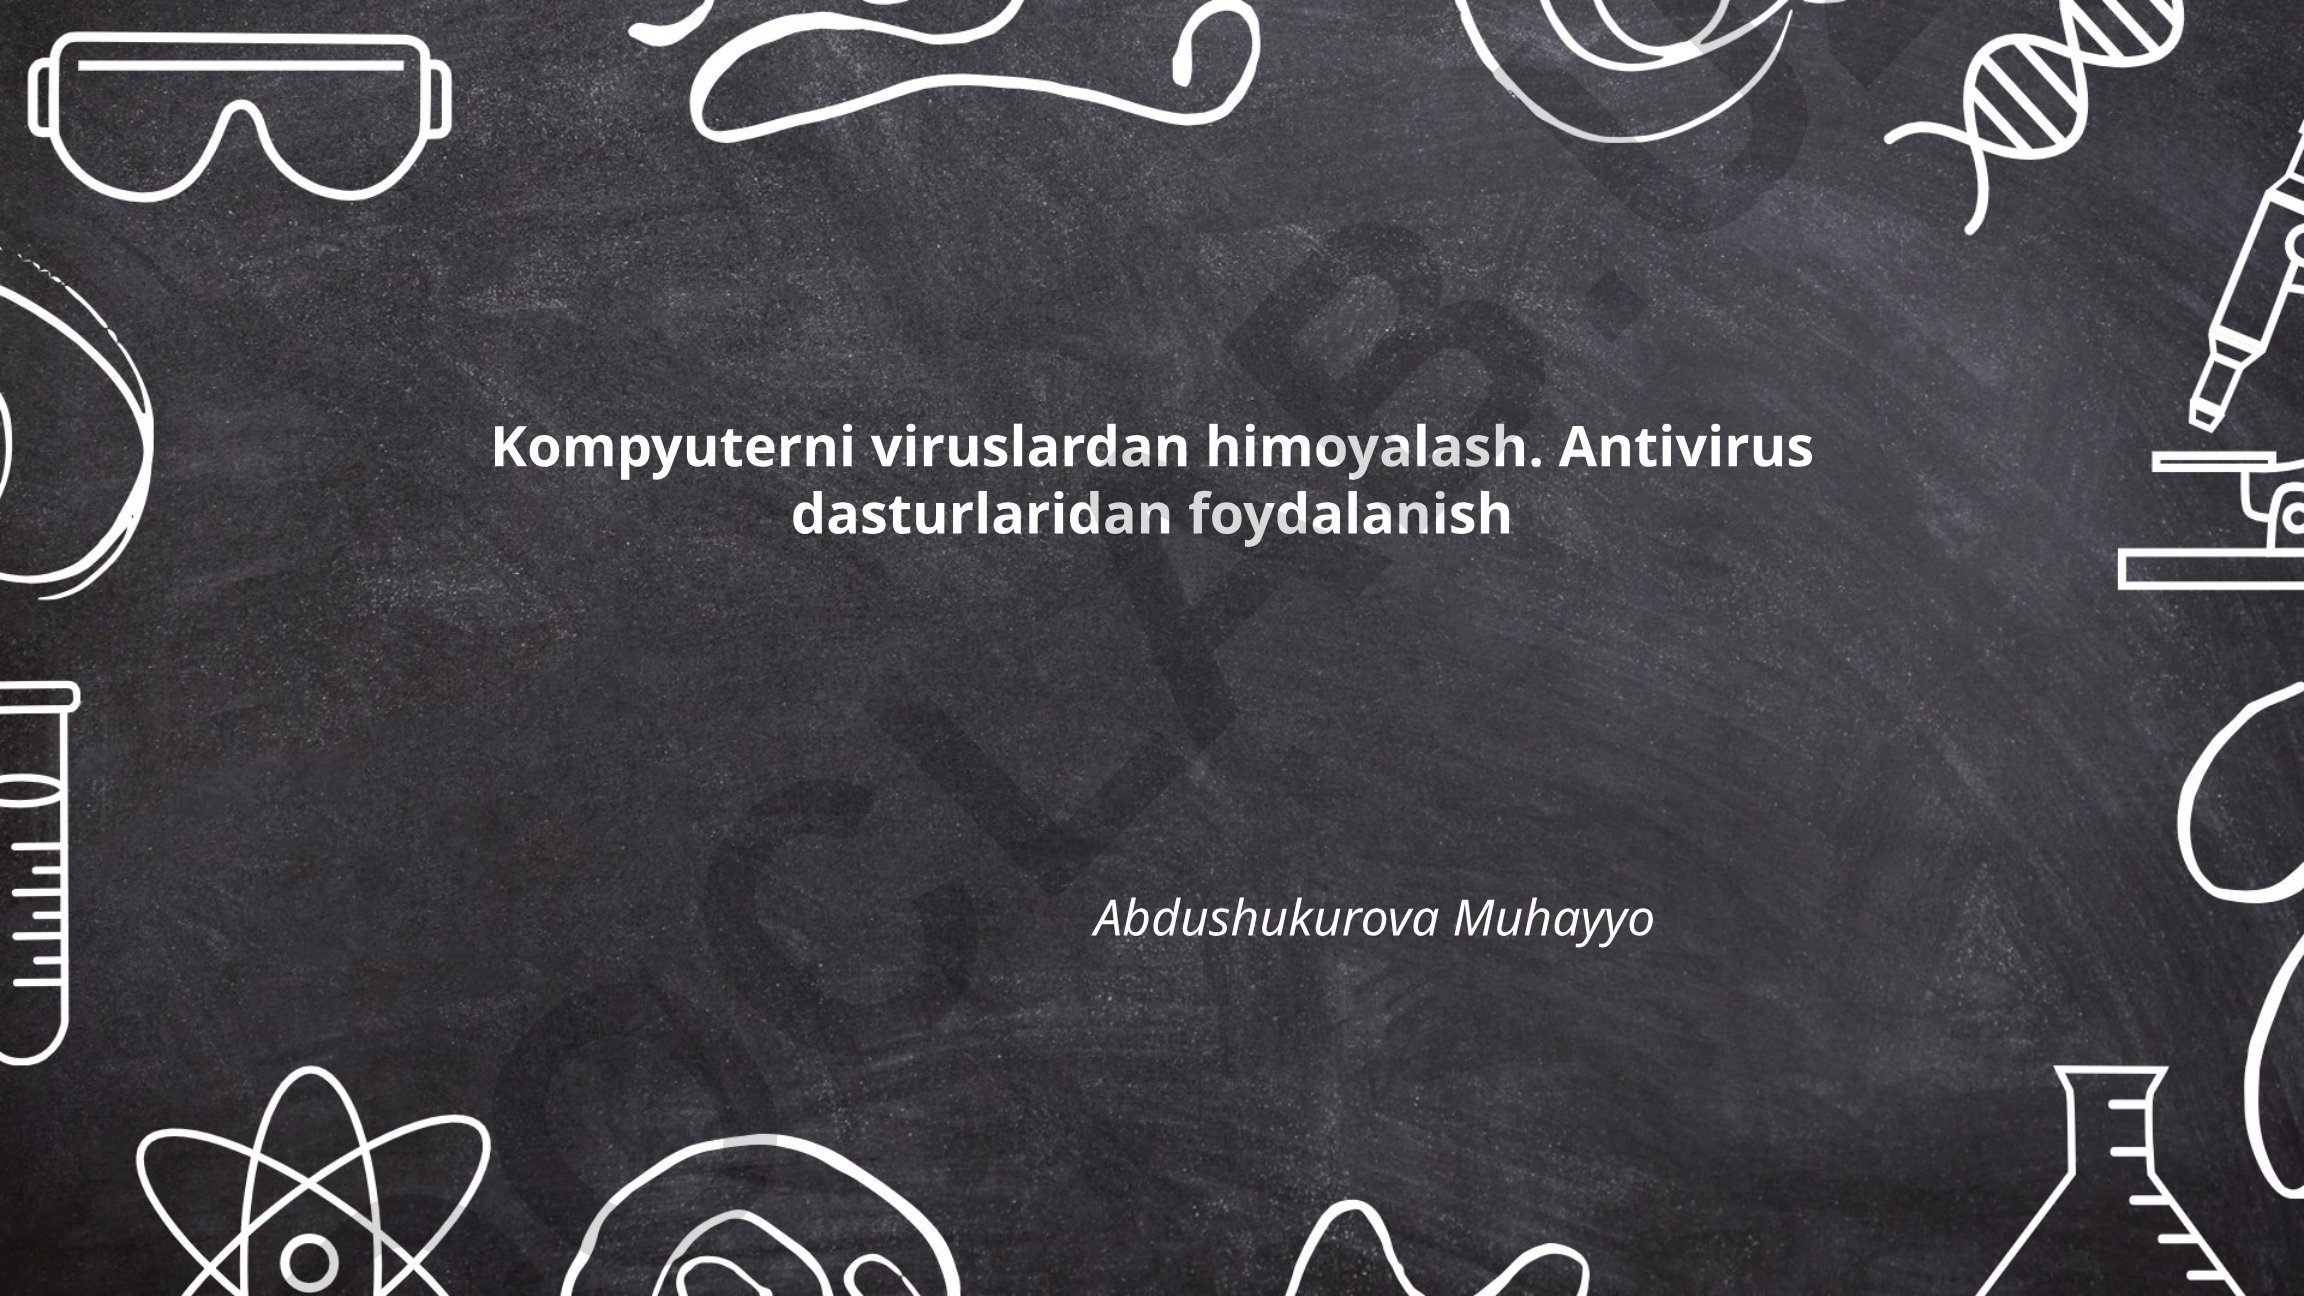 Kompyuterni viruslardan himoyalash. Antivirus
dasturlaridan foydalanish
Abdushukurova Muhayyo